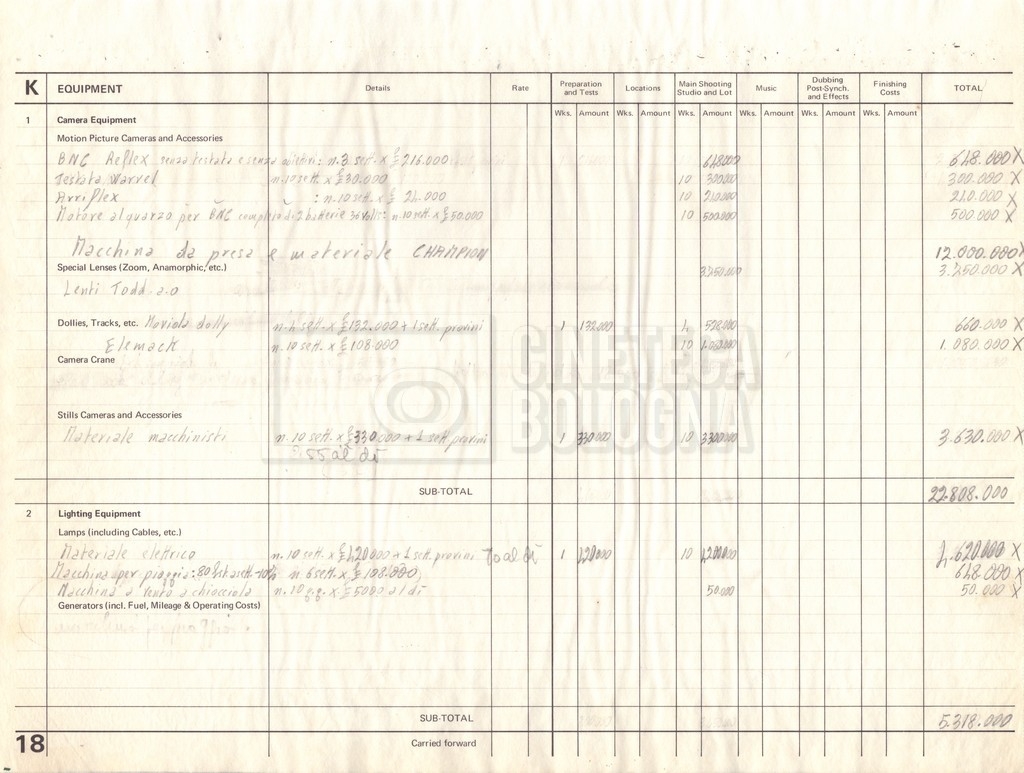 K EQUIPMENT Details Rate Preparation and Tests Locations Main Shooting Studio and Lot Music Dubbing Post-Synch. and Effects Finishing Costs TOTAL
Wks. Amount Wks. Amount Wks. Amount Wks. Amount Wks. Amount Wks. Amount
1 Camera Equipment
Motion Picture Cameras and Accessories
BNC Reflex senza testata e senza : n. 3 sett. x £ 216.000 648.000 648.000 X
Testata Warvel n. 10 sett. x £ 30.000 10 300.000 300.000 X
Arriflex : n. 10 sett. x £ 21.000 10 210.000 210.000 X
Motore al quarzo per BNC completo di 2 batterie 36 volts: n. 10 sett. x £ 50.000 10 500.000 500.000 X
Macchina da presa e materiale CHAMPION 12.000.000 X
Special Lenses (Zoom, Anamorphic, etc.) 3.250.000 X
Lenti Todd-a.o
CINETECA
BOLOGNA
Dollies, Tracks, etc. Moviola dolly n. 4 sett. x £ 132.000 + 1 sett. provini 1 132.000 4 528.000 660.000 X
Elemack n. 10 sett. x £ 108.000 10 1.080.000 X
Camera Crane
Stills Cameras and Accessories
Materiale macchinisti n. 10 sett. x £ 330.000 + 1 sett. provini 1 330.000 10 3300.000 3.630.000 X
55 al dì
SUB-TOTAL 22.808.000
2 Lighting Equipment
Lamps (including Cables, etc.)
Materiale elettrico n. 10 sett. x £ 420.000 + 1 sett. provini 70 al dì 1 420.000 10 4200.000 4.620.000 X
Macchina per pioggia: n 6 sett. x £ 108.000 648.000 X
Macchina a vento a chiocciola n. 10 g.g. x £ 5000 al dì 50.000 50.000 X
Generators (incl. Fuel, Mileage & Operating Costs)
SUB-TOTAL 5.318.000
18 Carried forward